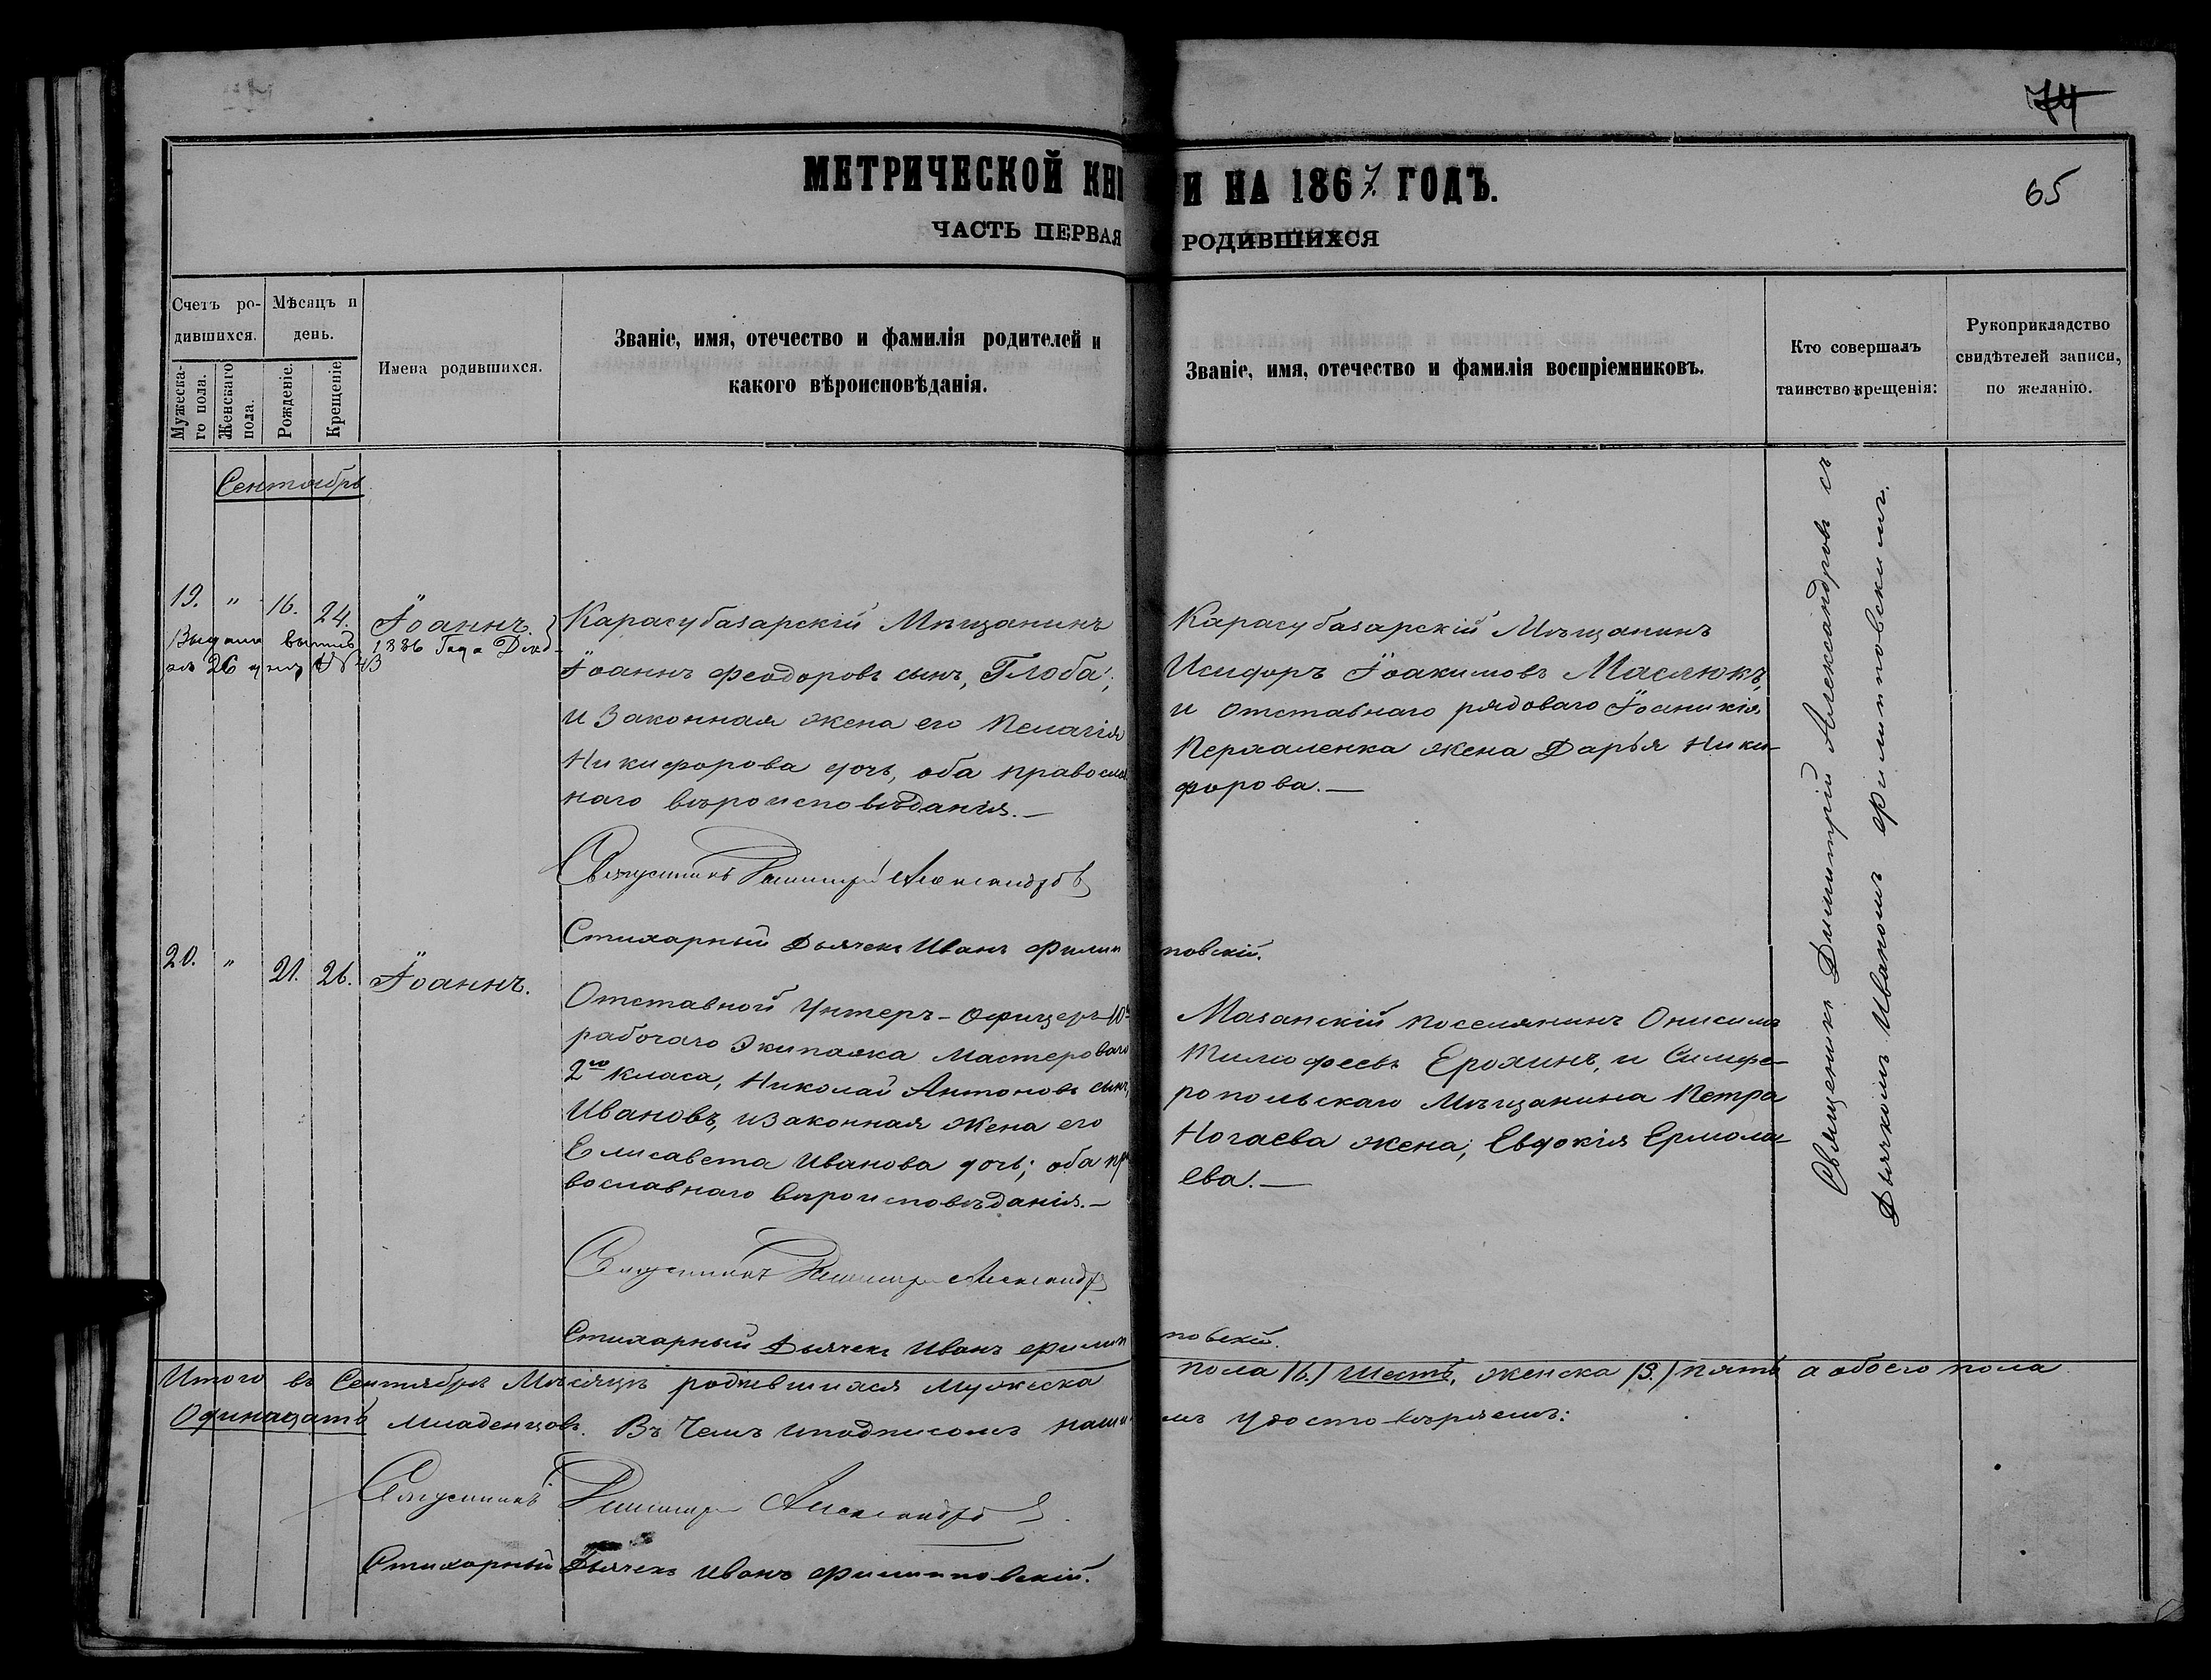 74
МЕТРИЧЕСКОЙ КНИ И НА 1867. ГОДЪ.
65
ЧАСТЬ ПЕРВАЯ РОДИВШИХСЯ
Счетъ ро-
дившихся.
Мужеска-
го пола.
Женскаго
пола.
Мѣсяцъ и
день.
Рожденіе.
Крещеніе
Имена родившихся.
Званіе, имя, отечество и фамилія родителей и
какого вѣроисповѣданія.
Званіе, имя, отечество и фамилія воспріемниковъ.
Кто совершалъ
таинство крещенія:
Рукоприкладство
свидѣтелей записи,
по желанію.
Сентябрь
19. " 16. 24. Іоаннъ.
1886 Года
26
Карасубазарскій Мѣщанинъ
Іоаннъ Феодоровъ сынъ, Глоба;
и законная жена его Пелагія
Никифорова дочь, оба правосла
наго вѣроисповѣданія.—
Карасубазарскій Мѣщанинъ
Исидоръ Іоакимовъ Маслюкъ,
и отставнаго рядоваго Іоаникія
Пермаленка жена Дарья Ники-
форова.—
Священникъ Димитрій Александровъ
Стихарный Дьячекъ Иванъ Филип повскій.
20. " 21. 26. Іоаннъ.
Отставной Унтеръ-Офицеръ 10
рабочаго Экипажа Мастероваго
2го класа, Николай Антоновъ сынъ,
Ивановъ, и законная жена его
Елисавета Иванова дочь; оба пра
вославнаго вѣроисповѣданія.—
Мазанскій поселянинъ Онисимъ
Тимофеевъ Ерохинъ, и Симфе-
ропольскаго Мѣщанина Петра
Ногаева жена; Евдокія Ермола-
ева.—
Священникъ Димитрій Александровъ
Стихарный Дьячекъ Иванъ Филип повскій.
Священникъ Димитрій Александровъ съ
Дьячкомъ Иваномъ Филиповскимъ.
Итого въ Сентябрѣ Мѣсяцѣ родившихся Мужеска пола /6./ Шесть, женска /5./ пять а обоего пола
Одинадать младенцовъ. Въ чемъ и подписомъ наши мъ удостовѣряемъ:
Священникъ Димитрій Александровъ
Стихарный Дьячекъ Иванъ Филиповскій.